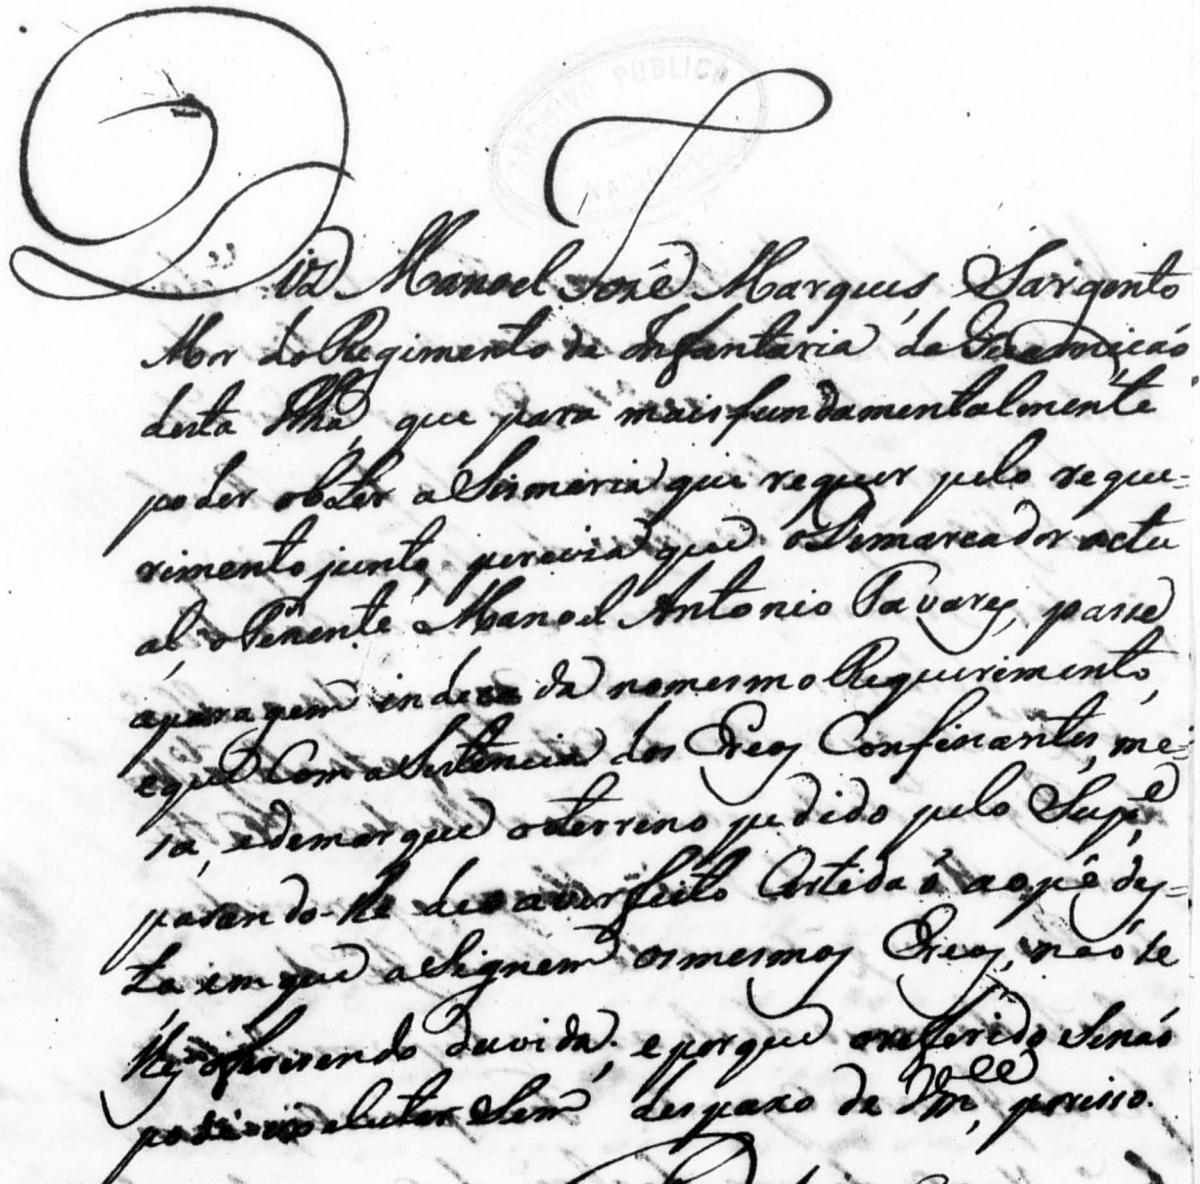 ARCHIVO PUBLICO NACIONAL
Diz Manoel José Marques, Sargento
Mor do Regimento de Infantaria da Guarnição
desta Ilha, que para mais fundamentalmente
poder obter a Sismaria que requer pelo reque=
rimento junto, percizia que o Demarcador actu
al, o Tenente Manoel Antonio Tavares, passe
aparagem indecada no mesmo Requerimento,
e que Com asistencia dos Ereos Confinantes, me=
ia, e demarque o terreno pedido pelo Supe.
pasando-lhe de o aver feito Certidaó ao pé des=
ta, em que asignem os mesmos Ereos, naó se
lhes oferesendo duvida; e porque o referido Se naó
pode exzecutar Sem despaxo de Vmcee, porisso.